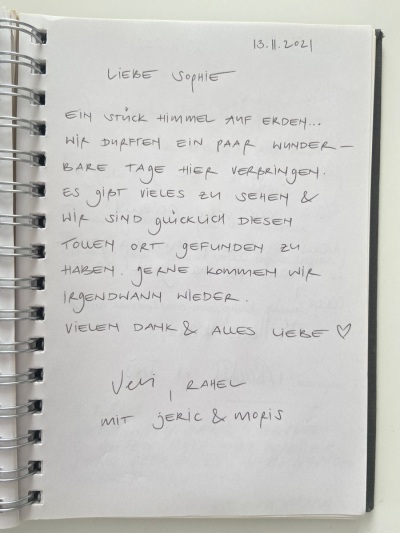 13.11.2021
LIEBE SOPHIE
EIN STÜCK HIMMEL AUF ERDEN...
WIR DURFTEN EIN PAAR WUNDER-
BARE TAGE HIER VERBRINGEN.
ES GIBT VIELES ZU SEHEN &
WIR SIND GLÜCKLICH DIESEN
TOLLEN ORT GEFUNDEN ZU
HABEN. GERNE KOMMEN WIR
IRGENDWANN WIEDER.
VIELEN DANK & ALLES LIEBE ♡
Veri, RAHEL
MIT JERIC & MORIS